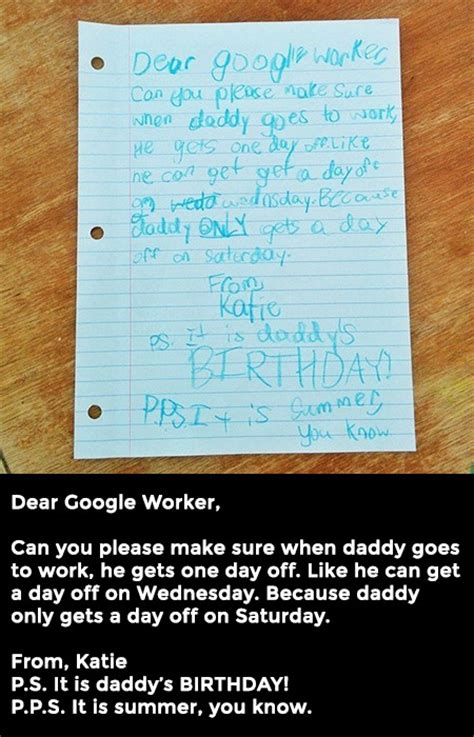 Dear google worker,
Can you please make sure
when daddy goes to work,
He gets one day off. Like
he can get get a day off
on weda wednsday. Because
daddy ONLY gets a day
off on saterday.
From,
Katie
P.S. It is daddy's
BIRTHDAY!
P.P.S. It is summer,
you know
Dear Google Worker,
Can you please make sure when daddy goes
to work, he gets one day off. Like he can get
a day off on Wednesday. Because daddy
only gets a day off on Saturday.
From, Katie
P.S. It is daddy's BIRTHDAY!
P.P.S. It is summer, you know.